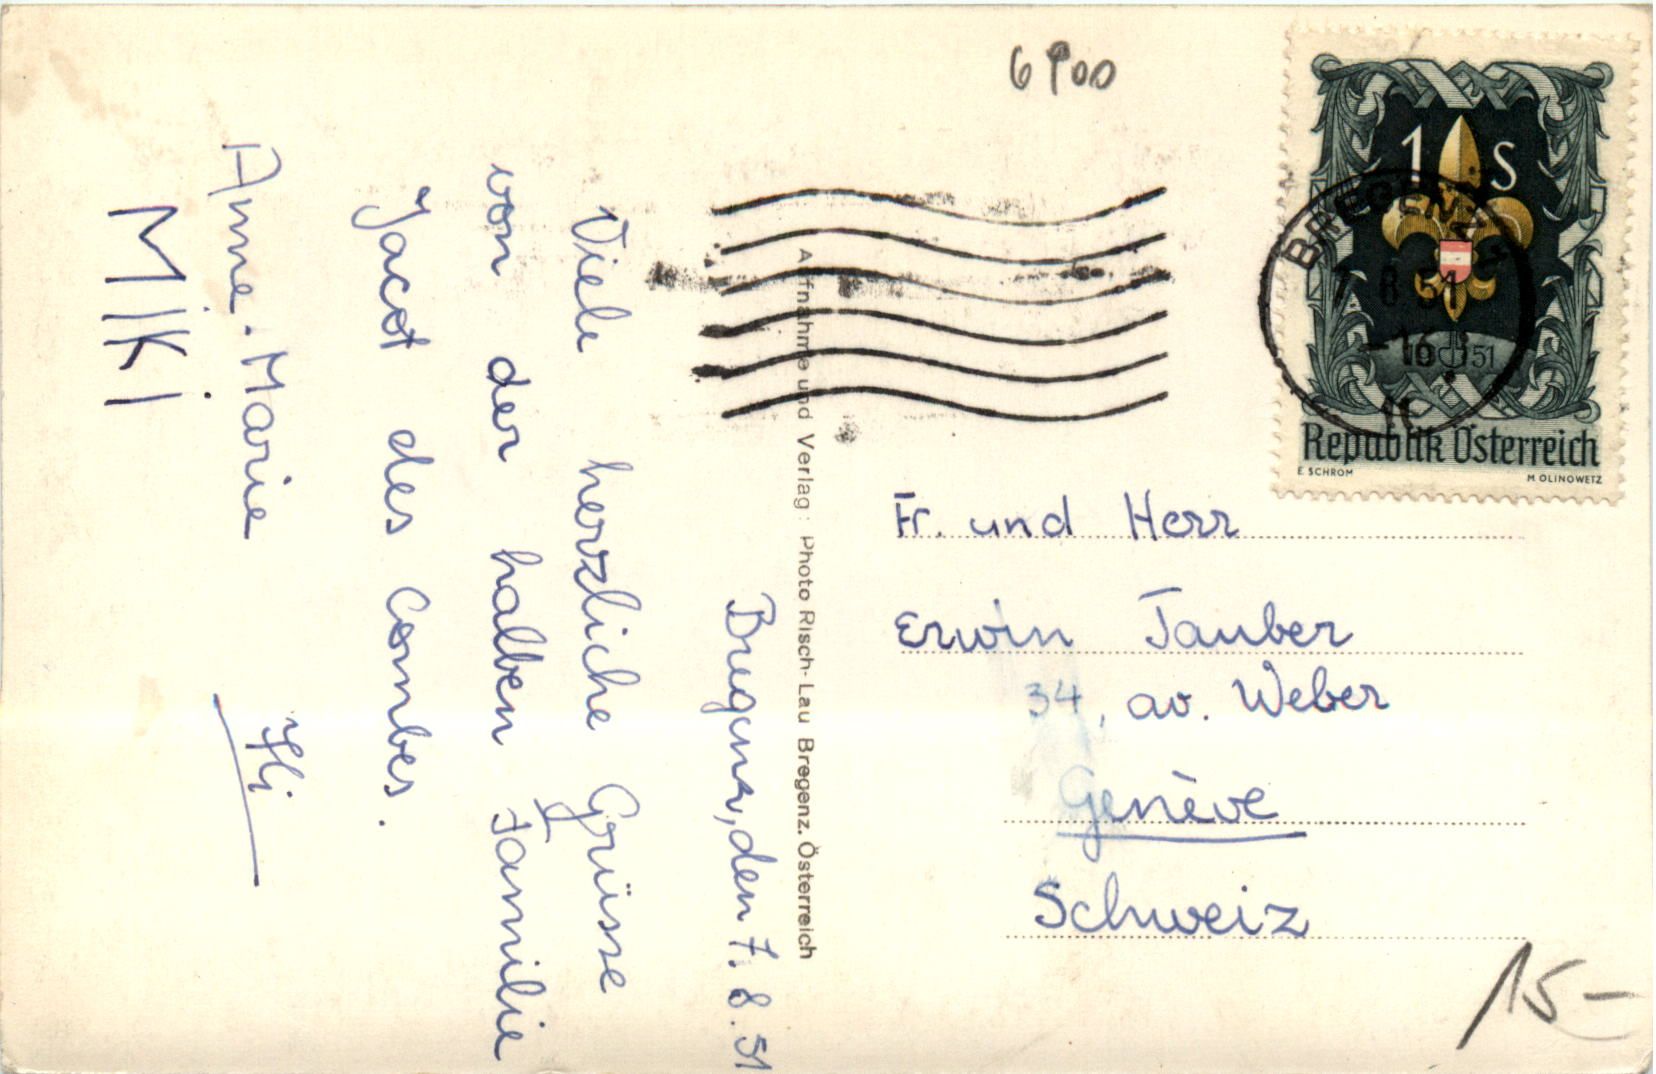 6900
1 S
BREGENZ
7. 8. 51
-16
1951
Republik Österreich
E SCHROM
M OLINOWETZ
Aufnahme und Verlag: Photo Risch-Lau Bregenz. Österreich
Bregenz, den 7. 8. 51
Viele herzliche Grüsse
von der halben Familie
Jacot des Combes.
Anne-Marie
MIKI
Fr. und Herr
Erwin Tauber
34, av. Weber
Genève
Schweiz
15-